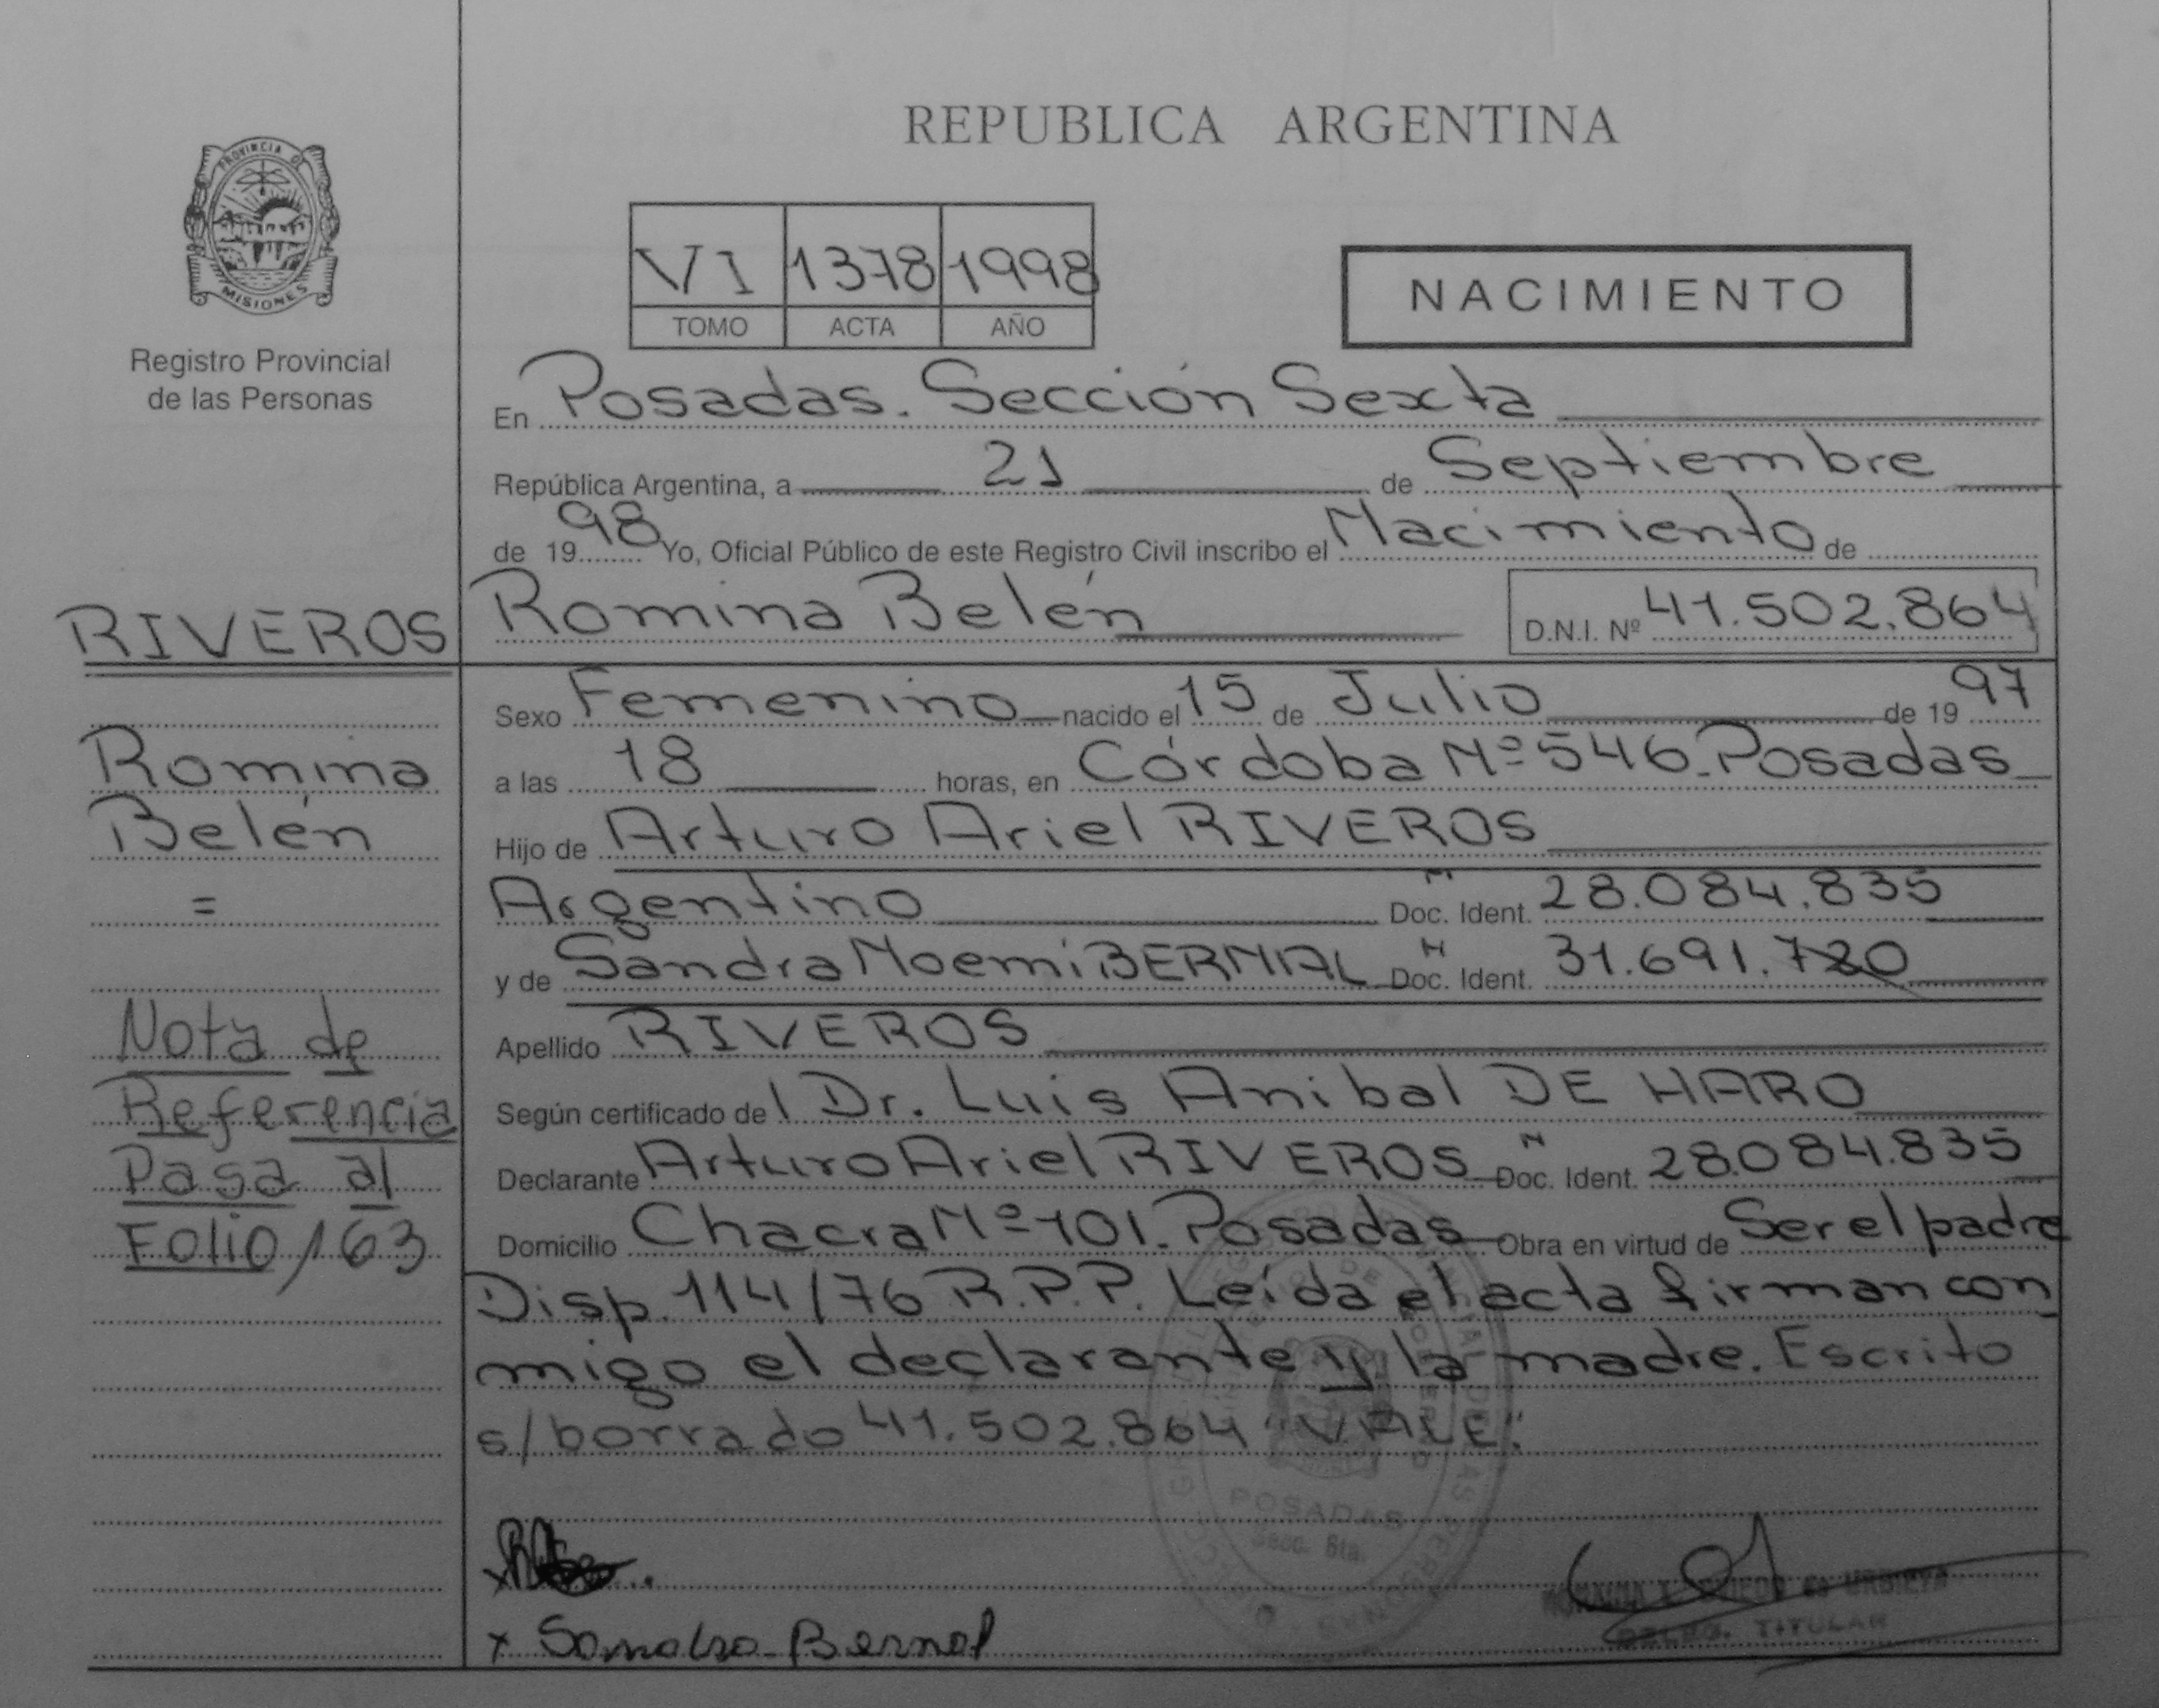 REPUBLICA ARGENTINA
PROVINCIA DE
MISIONES
Registro Provincial
de las Personas
VI 1378 1998
TOMO ACTA AÑO
NACIMIENTO
En Posadas. Sección Sexta
República Argentina, a 21 de Septiembre
de 1998 Yo, Oficial Público de este Registro Civil inscribo el Nacimiento de
RIVEROS Romina Belén D.N.I. Nº 41.502.864
Sexo Femenino nacido el 15 de Julio de 1997
a las 18 horas, en Córdoba Nº 546. Posadas
Hijo de Arturo Ariel RIVEROS
Argentino Doc. Ident. N 28.084.835
y de Sandra Noemi BERNAL Doc. Ident. N 31.691.720
Apellido RIVEROS
Según certificado del Dr. Luis Anibal DE HARO
Declarante Arturo Ariel RIVEROS Doc. Ident. N 28.084.835
Domicilio Chacra Nº 101. Posadas Obra en virtud de Ser el padre
Disp. 114/76 R.P.P. Leída el acta firman con
migo el declarante y la madre. Escrito
s/borrado 41.502.864 "VALE".
Romina
Belén
=
Nota de
Referencia
Pasa al
Folio 163
POSADAS
Secc. 6ta.
x
x Sandra Bernal
DELEG. TITULAR